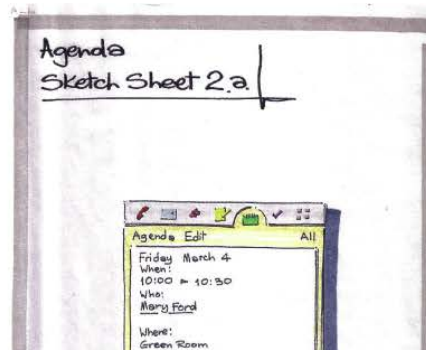 Agenda
Sketch Sheet 2.a.
Agenda Edit All
Friday March 4
When:
10:00 ► 10:30
Who:
Mary Ford
Where:
Green Room